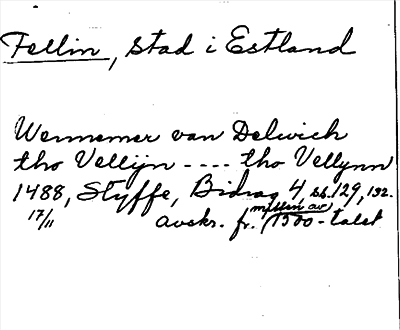 Fellin, stad i Estland
Wennemer van Delwich
tho Vellijn ---- tho Vellynn
1488, Styffe, Bidrag 4 ss. 129, 132.
17/11 avskr. fr. (mitten av) 1500-talet